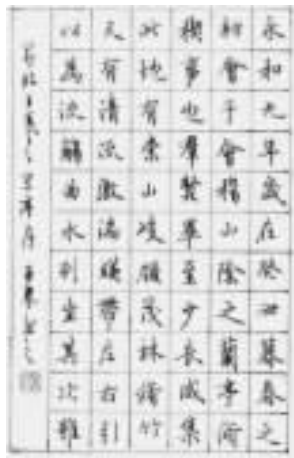 永和九年歲在癸丑暮春之
初會于會稽山陰之蘭亭脩
禊事也羣賢畢至少長咸集
此地有崇山峻嶺茂林脩竹
又有清流激湍暎帶左右引
以為流觴曲水列坐其次雖
节临王羲之兰亭序